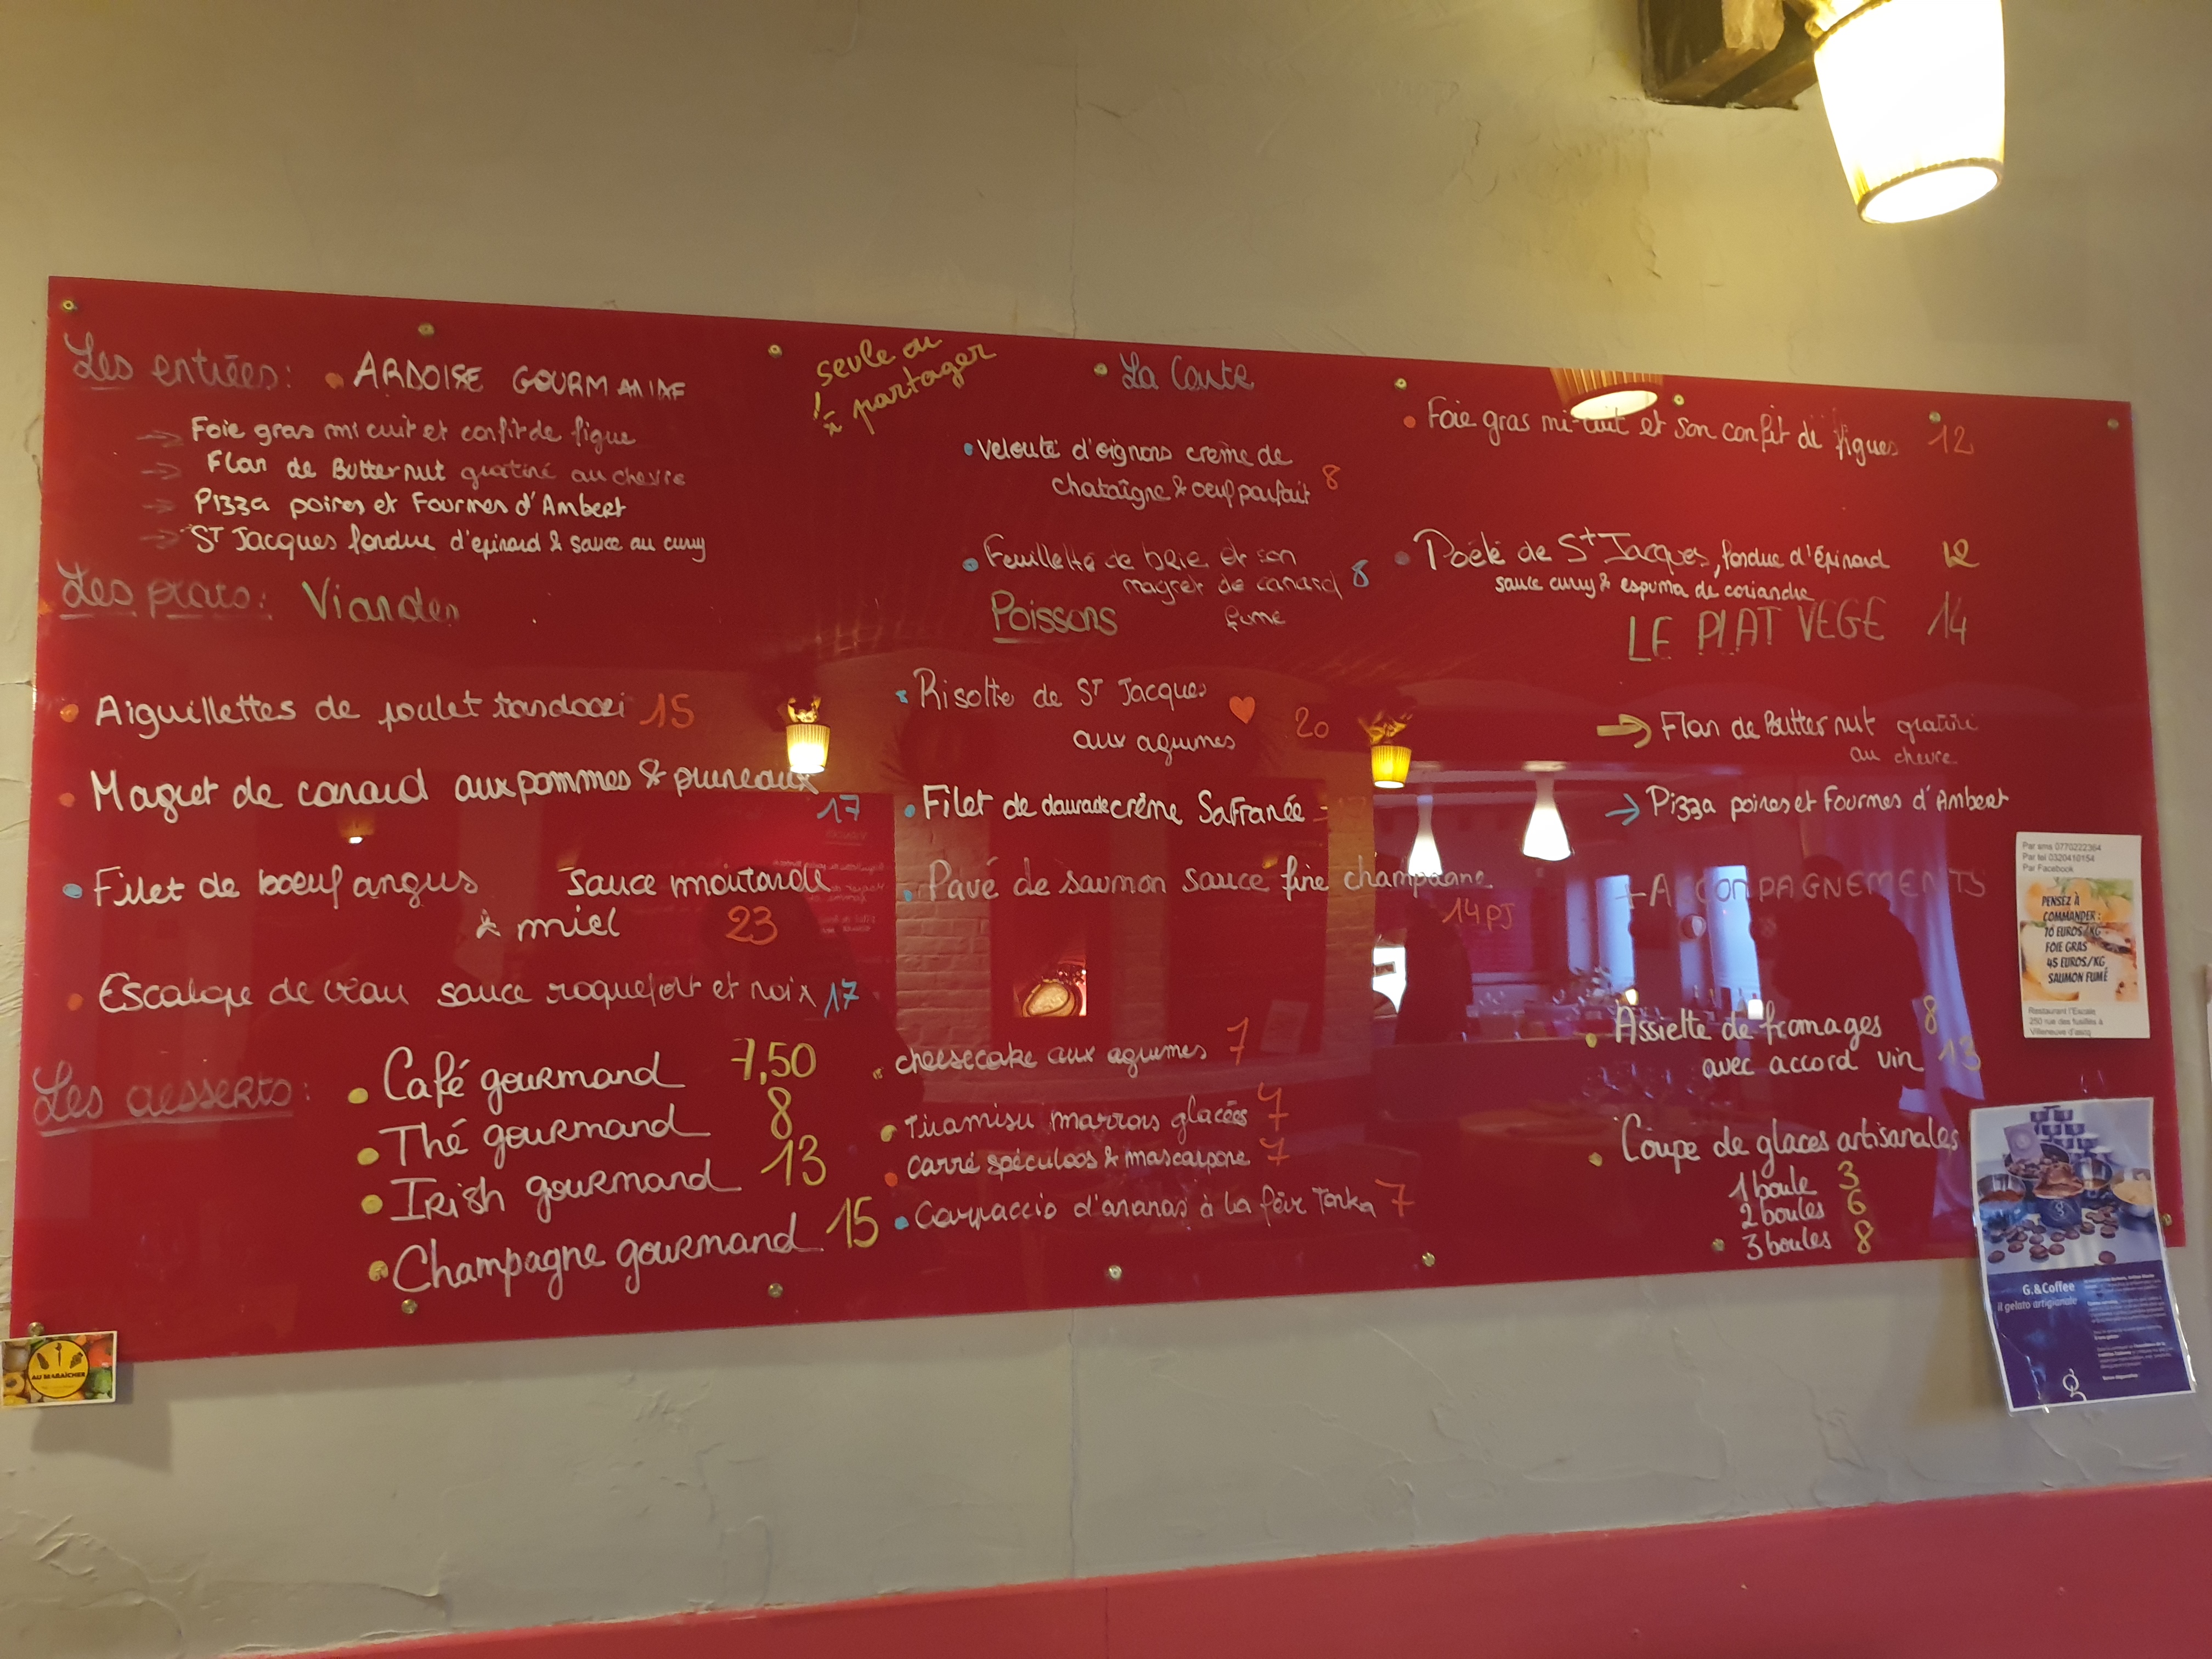 Les entrées:
ARDOISE GOURMANDE
seule ou
! à partager
→ Foie gras mi cuit et confit de figue
→ Flan de Butternut gratiné au chevre
→ Pizza poires et Fourmes d'Ambert
→ ST Jacques fondue d'épinard & sauce au curry
La Carte
• Velouté d'oignons crème de
chataîgne & oeuf parfait 8
• Feuilleté de brie et son
magret de canard 8
fumé
• Foie gras mi-cuit et son confit de figues 12
• Poélé de St Jacques, fondue d'épinard 12
sauce curry & espuma de coriandre
Les plats: Viandes
• Aiguillettes de poulet tandoori 15
• Magret de canard aux pommes & pruneaux
17
• Filet de boeuf angus sauce moutarde
& miel 23
• Escalope de veau sauce roquefort et noix 17
Poissons
• Risotto de ST Jacques
aux agumes ♥ 20
• Filet de daurade crème Safranée
• Pavé de saumon sauce fine champagne
14 PJ
LE PLAT VEGE 14
→ Flan de Butter nut gratiné
au chevre
→ Pizza poires et Fourmes d'Ambert
+ A COMPAGNEMENTS
Les desserts:
• Café gourmand 7,50
• Thé gourmand 8
• Irish gourmand 13
• Champagne gourmand 15
• cheesecake aux agumes 7
• Tiramisu marrons glacées 7
• Carré spéculoos & mascarpone 7
• Carpaccio d'ananas à la fève Tonka 7
• Assiette de fromages 8
avec accord vin 13
• Coupe de glaces artisanales
1 boule 3
2 boules 6
3 boules 8
Par sms 0770222364
Par tel 0320410154
Par Facebook
PENSEZ À
COMMANDER :
70 EUROS/KG
FOIE GRAS
45 EUROS/KG
SAUMON FUMÉ
Restaurant l'Escale
250 rue des fusillés à
Villeneuve d'ascq
G.&Coffee
il gelato artigianale
AU MARAÎCHER